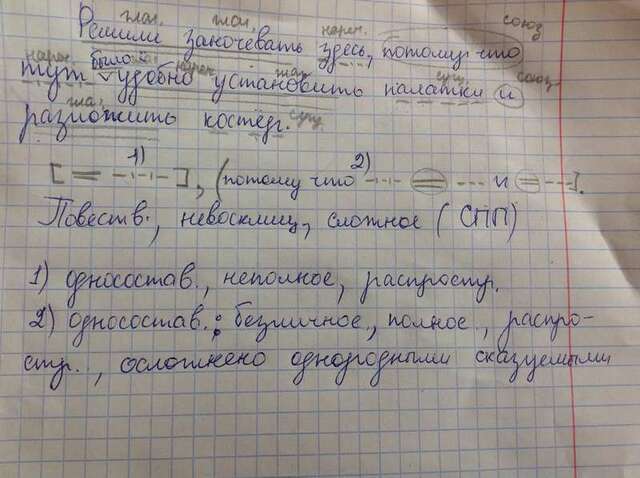 глаг. глаг. нареч. союз
Решили заночевать здесь, потому что
нареч. нареч. глаг. сущ. союз
тут было удобно установить палатки и
глаг. сущ.
разложить костёр.
1) 2)
[ ], (потому что и ].
Повеств., невосклиц, сложное (СПП)
1) односостав., неполное, распростр.
2) односостав.: безличное, полное, распро-
стр., осложнено однородными сказуемыми